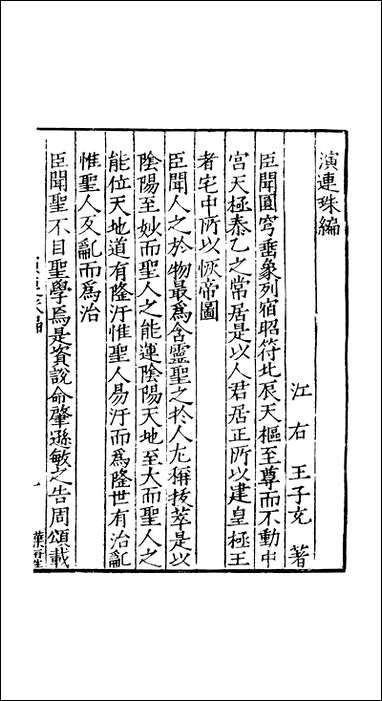 演連珠編
江右王子充著
臣聞圓穹垂象列宿昭符北辰天樞至尊而不動中
宮天極泰乙之常居是以人君居正所以建皇極王
者宅中所以恢帝圖
臣聞人之於物最為含靈聖之於人尤稱拔萃是以
陰陽至妙而聖人之能運陰陽天地至大而聖人之
能位天地道有隆汙惟聖人易汙而為隆世有治亂
惟聖人反亂而為治
臣聞聖不自聖學焉是資說命肇遜敏之告周頌載